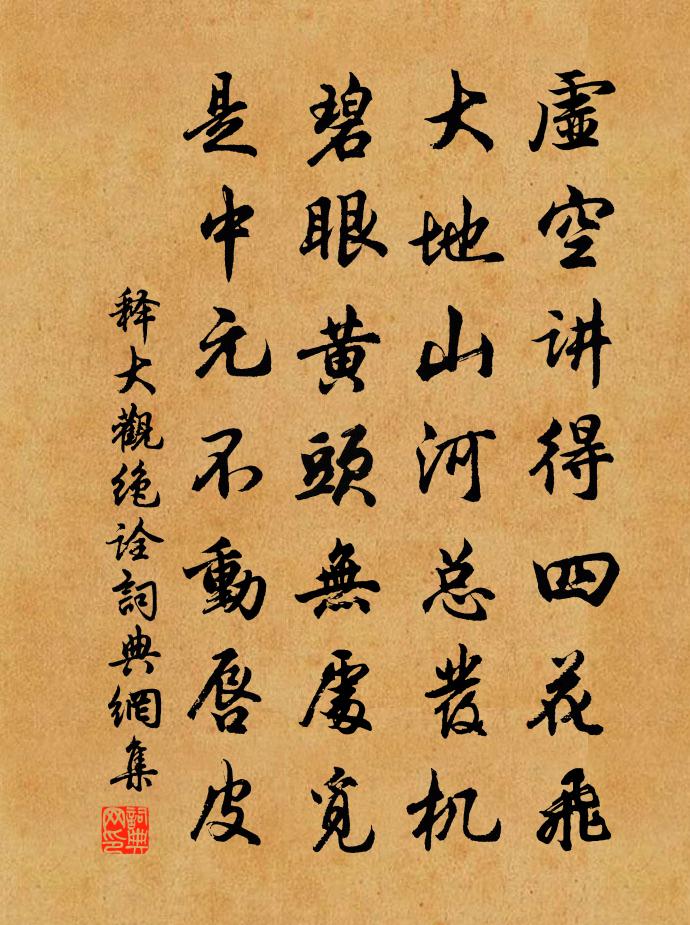 虛空讲得四花飛
大地山河总發机
碧眼黄頭無處覓
是中元不動唇皮
释大觀绝詮詞典網集
詞典网印